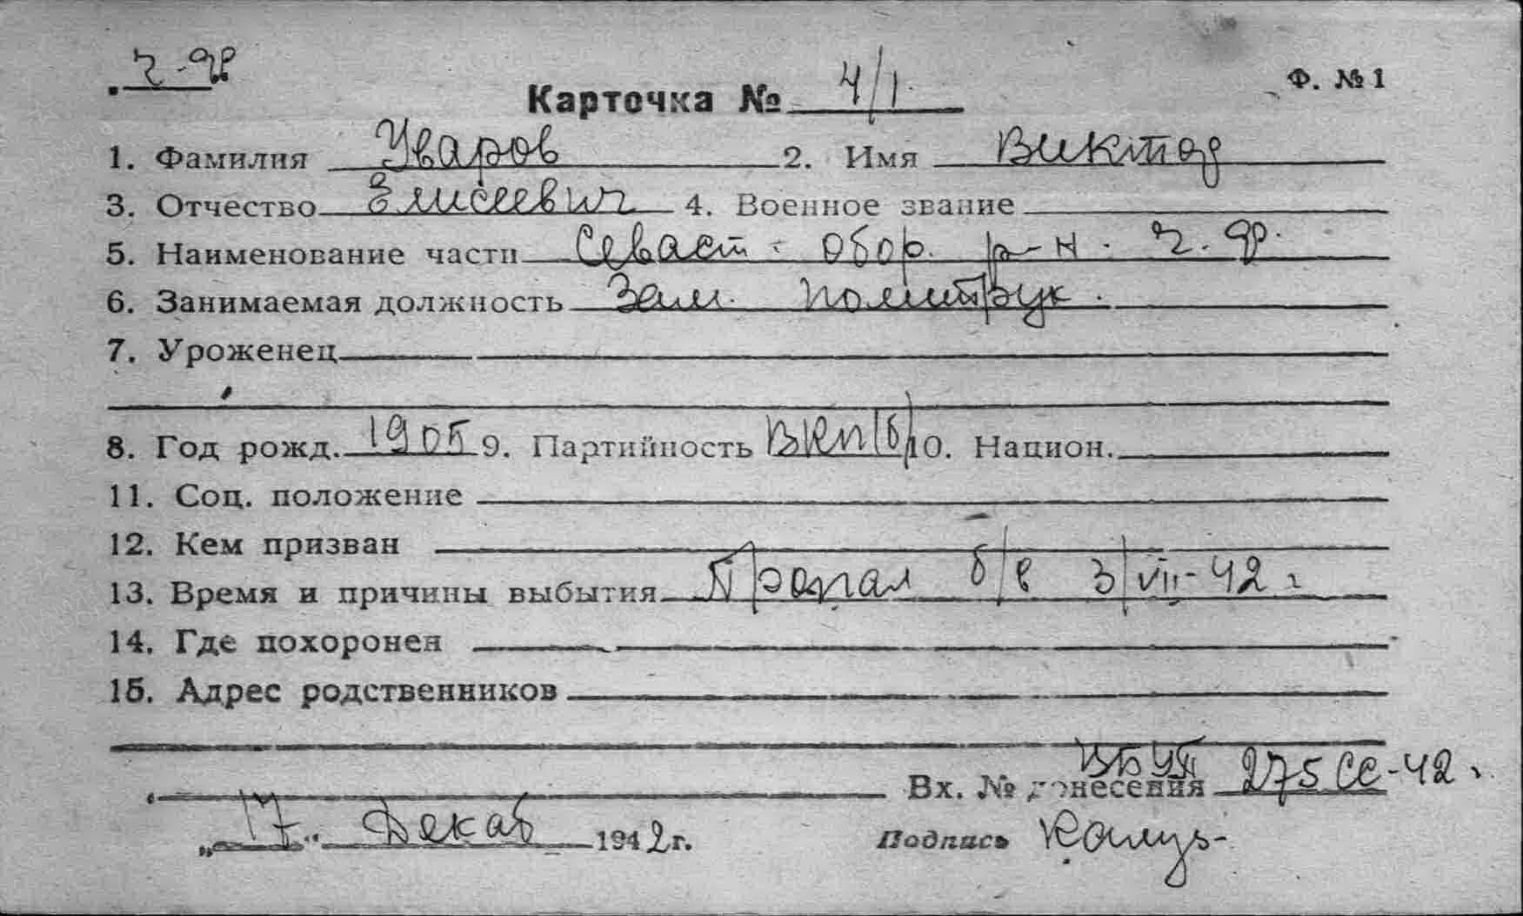 ч-ф
Карточка № 4/1. Ф. № 1
1. Фамилия Уваров 2. Имя Виктор
3. Отчество Елисеевич 4. Военное звание
5. Наименование части Севаст. обор. р-н. ч. ф.
6. Занимаемая должность Зам. политрук.
7. Уроженец
8. Год рожд. 1905 9. Партийность ВКП/б/ 10. Национ.
11. Соц. положение
12. Кем призван
13. Время и причины выбытия Пропал б/в 3/VII-42 г
14. Где похоронен
15. Адрес родственников
Вх. № донесения 275 сс-42 г
„17" Декаб 1942 г. Подпись